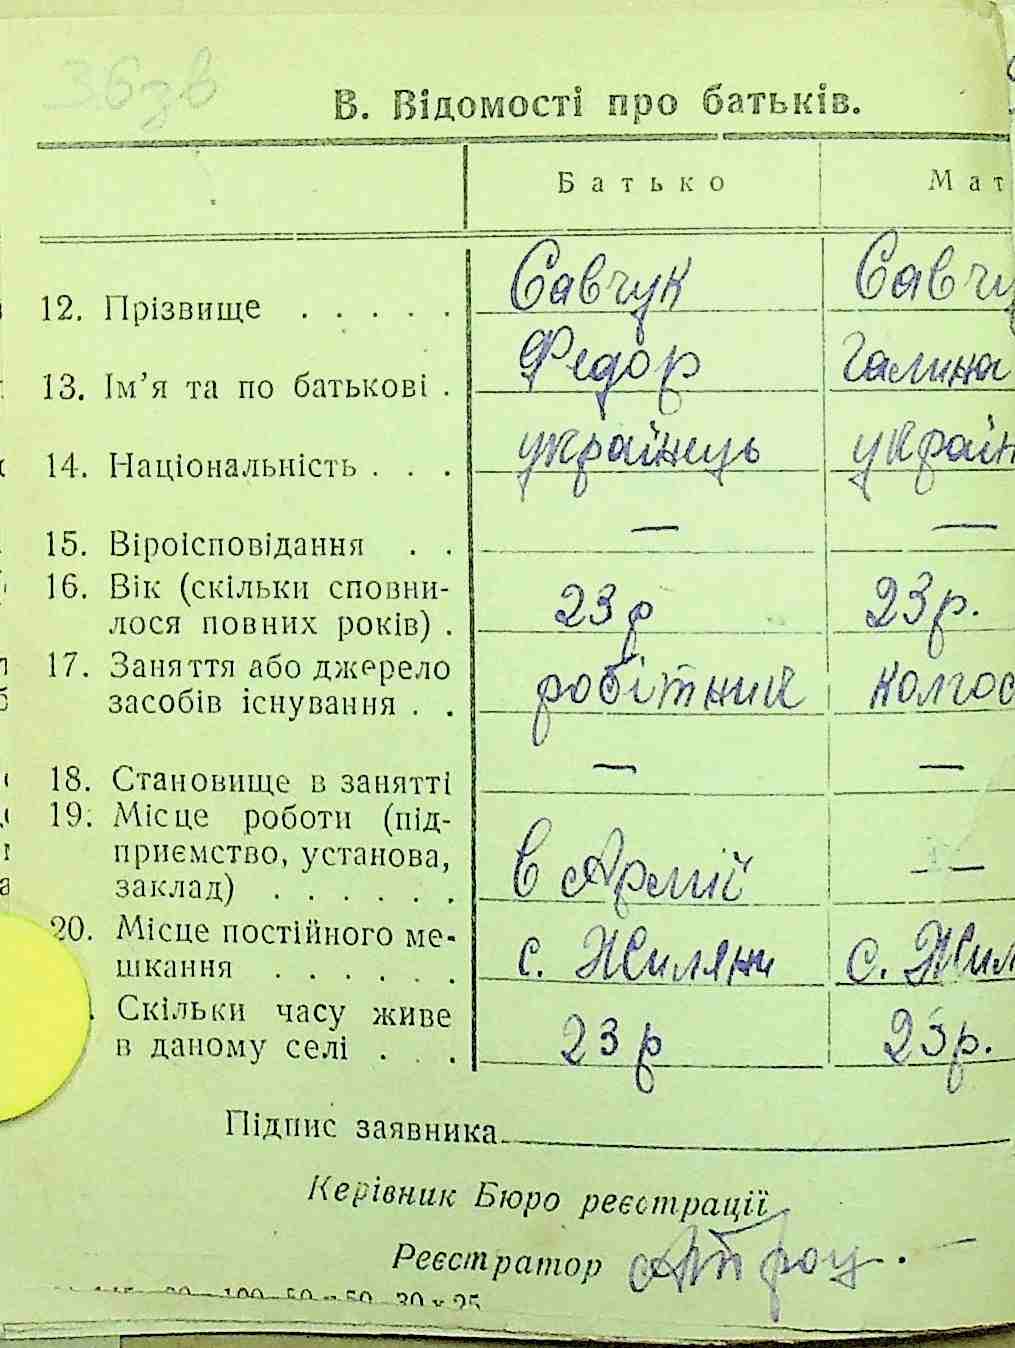 36зв
В. Відомості про батьків.
Батько Мат
12. Прізвище . . . . . Савчук Савчу
13. Ім’я та по батькові . Федор Галина
14. Національність . . . українець україн
15. Віроісповідання . . — —
16. Вік (скільки сповни-
лося повних років) . 23 р 23 р.
17. Заняття або джерело
засобів існування . . робітник колгос
18. Становище в занятті — —
19. Місце роботи (під-
приємство, установа,
заклад) . . . . . . в Армії — —
20. Місце постійного ме-
шкання . . . . . . с. Жиляни с. Жил
. Скільки часу живе
в даному селі . . . 23 р 23 р.
Підпис заявника
Керівник Бюро реєстрації
Реєстратор